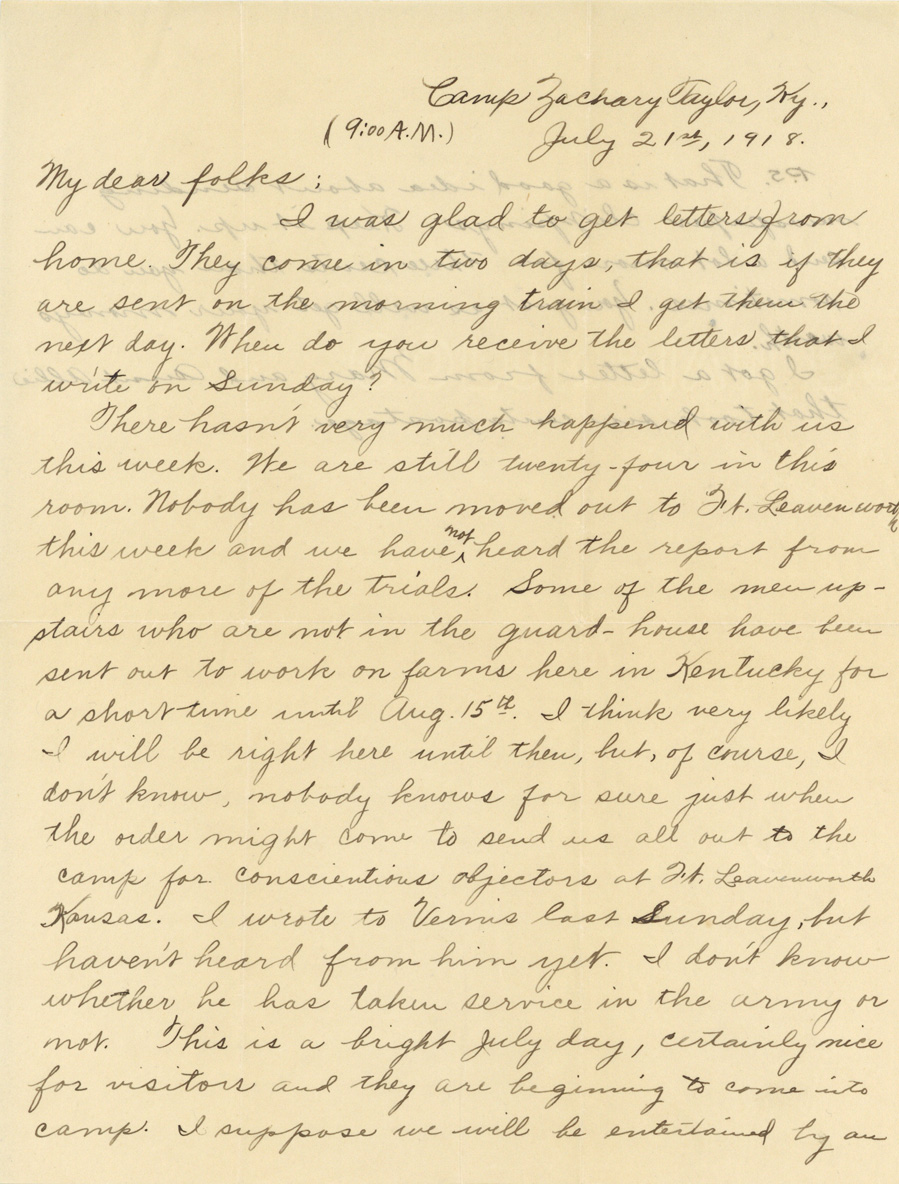 Camp Zachary Taylor, Ky.,
(9:00 A.M.) July 21st, 1918.
My dear folks;
I was glad to get letters from
home. They come in two days, that is if they
are sent on the morning train I get them the
next day. When do you receive the letters that I
write on Sunday?
There hasn't very much happened with us
this week. We are still twenty-four in this
room. Nobody has been moved out to Ft. Leavenworth
this week and we have not heard the report from
any more of the trials. Some of the men up-
stairs who are not in the guard-house have been
sent out to work on farms here in Kentucky for
a short time until Aug. 15th. I think very likely
I will be right here until then, but, of course, I
don't know, nobody knows for sure just when
the order might come to send us all out to the
camp for conscientious objectors at Ft. Leavenworth
Kansas. I wrote to Vernis last Sunday, but
haven't heard from him yet. I don't know
whether he has taken service in the army or
not. This is a bright July day, certainly nice
for visitors and they are beginning to come into
camp. I suppose we will be entertained by an